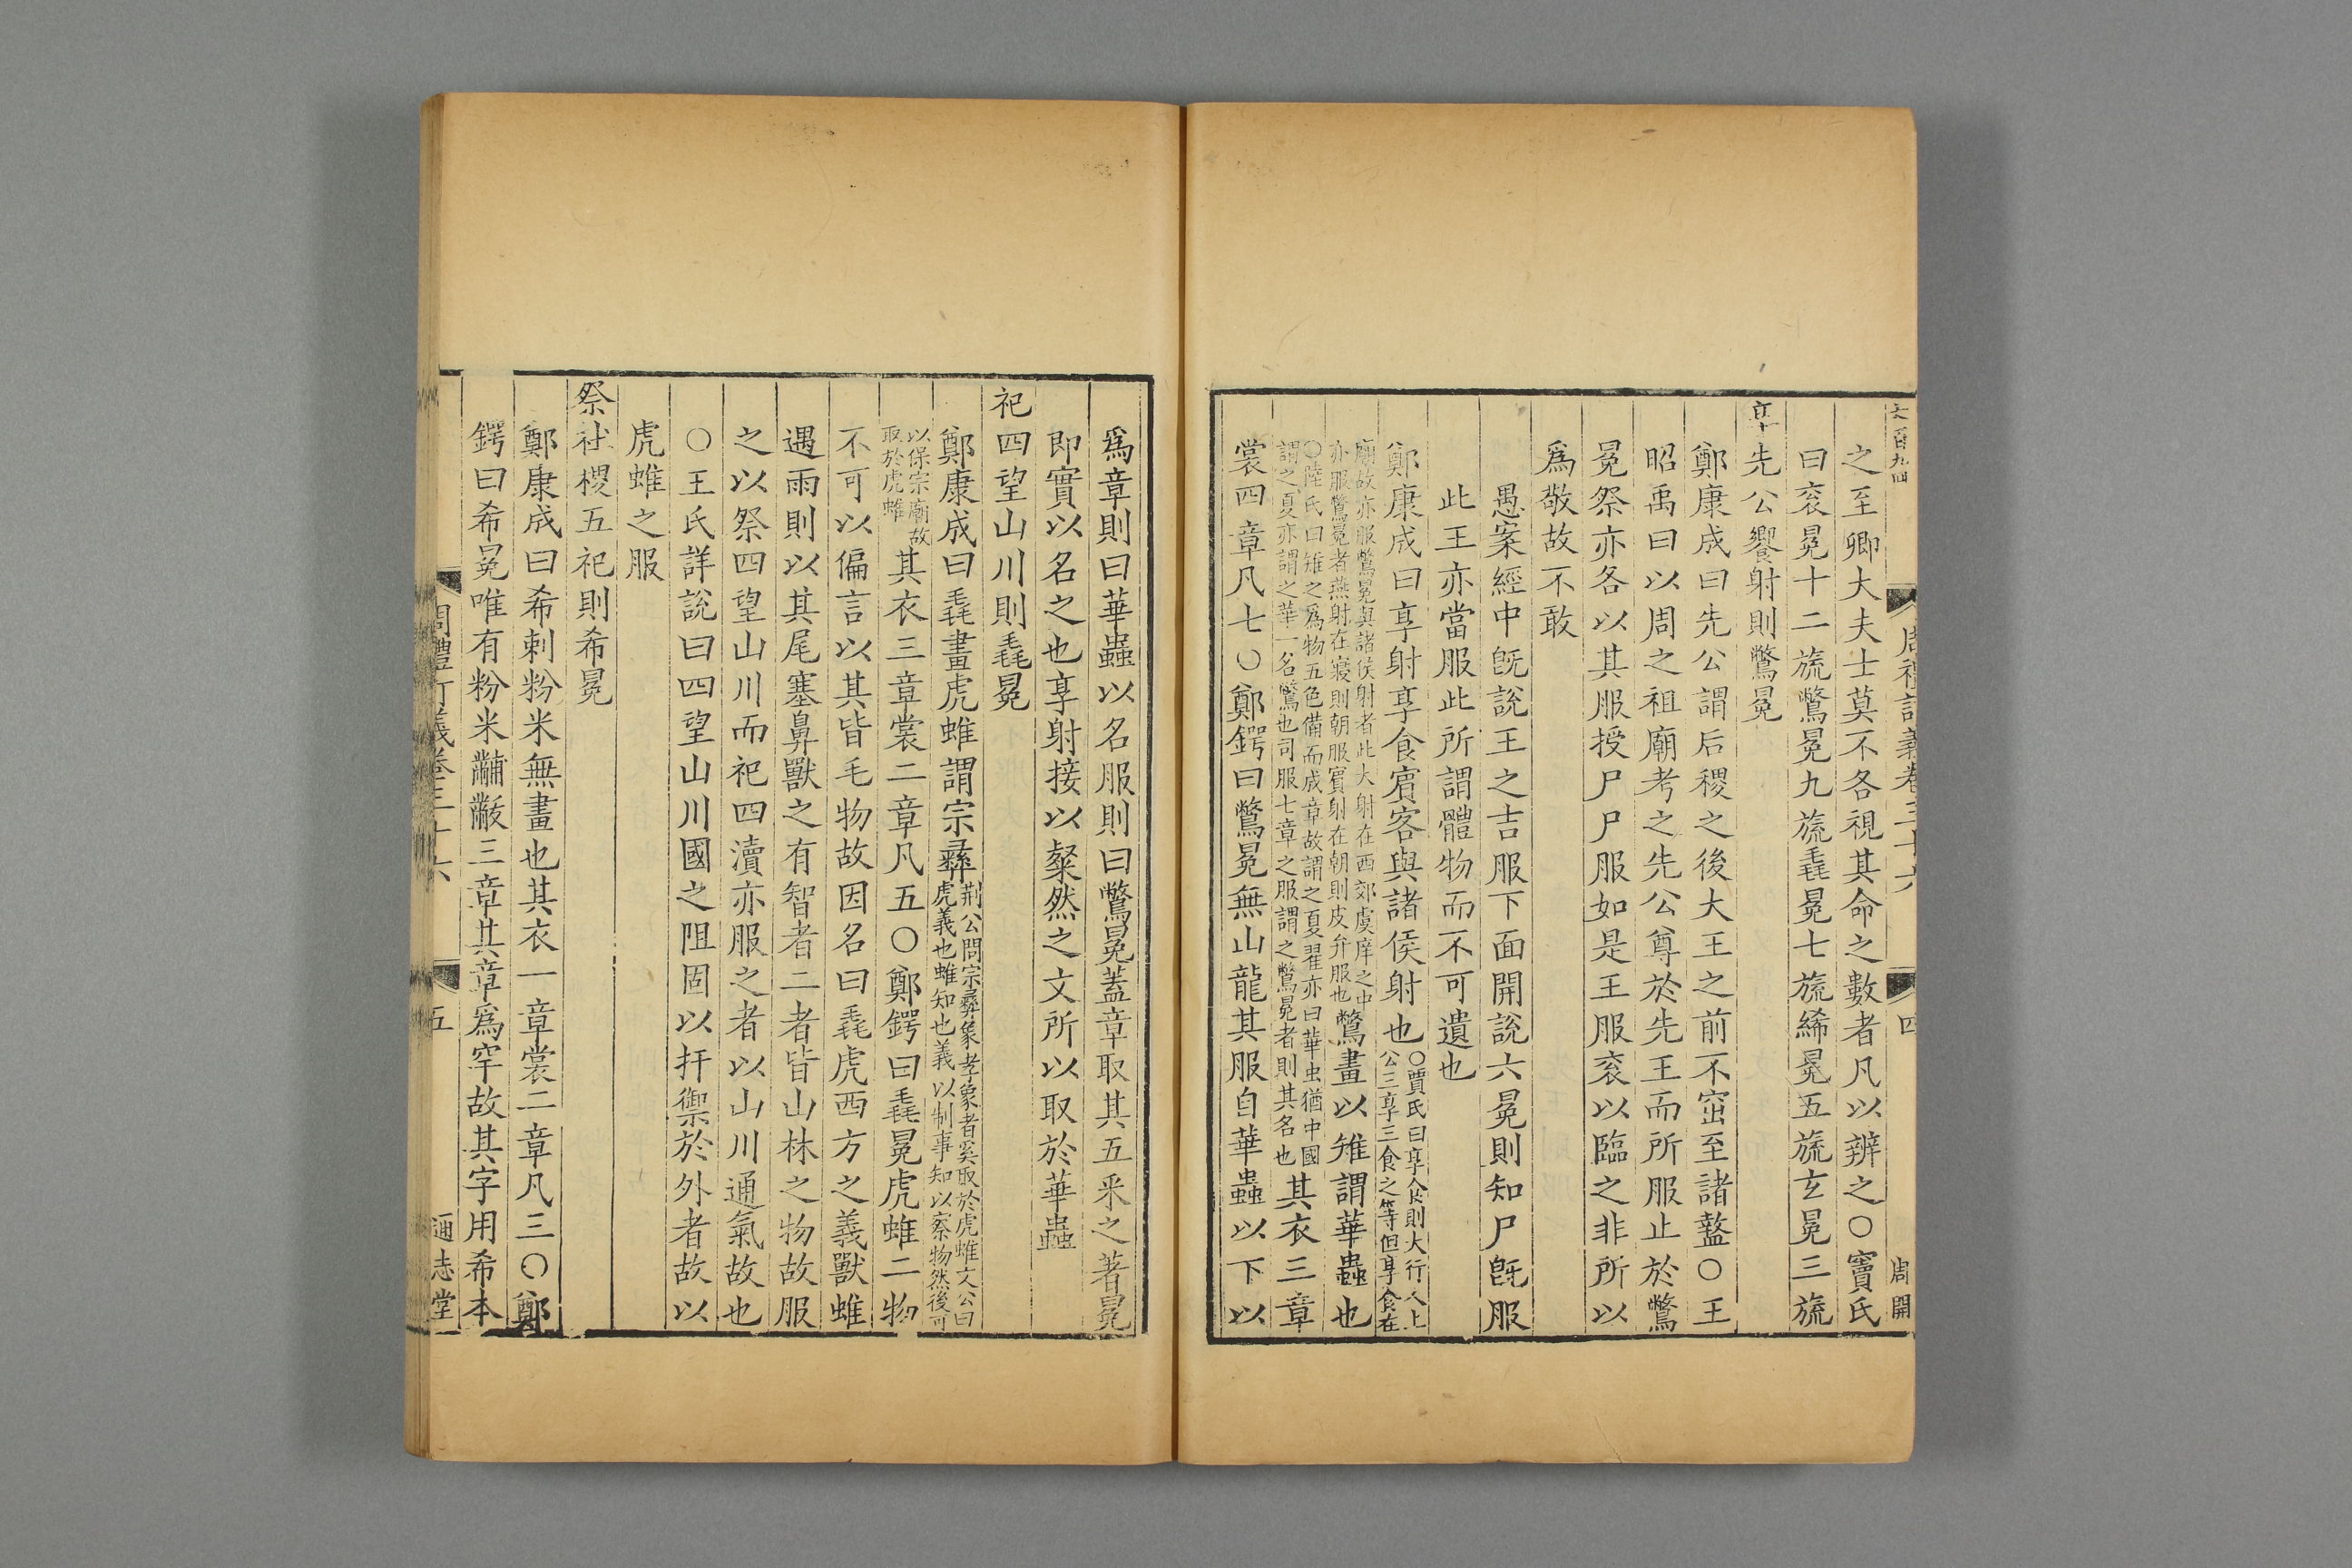 六百九四 周禮訂義卷三十六 四 周開
之至卿大夫士莫不各視其命之數者凡以辨之○竇氏
曰衮冕十二旒鷩冕九旒毳冕七旒絺冕五旒玄冕三旒
享先公饗射則鷩冕
鄭康成曰先公謂后稷之後大王之前不窋至諸盩○王
昭禹曰以周之祖廟考之先公尊於先王而所服止於鷩
冕祭亦各以其服授尸尸服如是王服衮以臨之非所以
爲敬故不敢
愚案經中旣說王之吉服下面開說六冕則知尸旣服
此王亦當服此所謂體物而不可遺也
鄭康成曰享射享食賓客與諸侯射也○賈氏曰享食則大行人上
公三享三食之等但享食在
廟故亦服鷩冕與諸侯射者此大射在西郊虞庠之中
亦服鷩冕者燕射在寢則朝服賓射在朝則皮弁服也鷩畫以雉謂華蟲也
○陸氏曰雉之爲物五色備而成章故謂之夏翟亦曰華虫猶中國
謂之夏亦謂之華一名鷩也司服七章之服謂之鷩冕者則其名也其衣三章
裳四章凡七○鄭鍔曰鷩冕無山龍其服自華蟲以下以
爲章則曰華蟲以名服則曰鷩冕蓋章取其五采之著冕
即實以名之也享射接以粲然之文所以取於華蟲
祀四望山川則毳冕
鄭康成曰毳畫虎蜼謂宗彝荆公問宗彝象孝象者奚取於虎蜼文公曰
虎義也蜼知也義以制事知以察物然後可
以保宗廟故
取於虎蜼其衣三章裳二章凡五○鄭鍔曰毳冕虎蜼二物
不可以偏言以其皆毛物故因名曰毳虎西方之義獸蜼
遇雨則以其尾塞鼻獸之有智者二者皆山林之物故服
之以祭四望山川而祀四瀆亦服之者以山川通氣故也
○王氏詳說曰四望山川國之阻固以扞禦於外者故以
虎蜼之服
祭社稷五祀則希冕
鄭康成曰希刺粉米無畫也其衣一章裳二章凡三○鄭
鍔曰希冕唯有粉米黼黻三章其章爲罕故其字用希本
周禮訂義卷三十六 五 通志堂